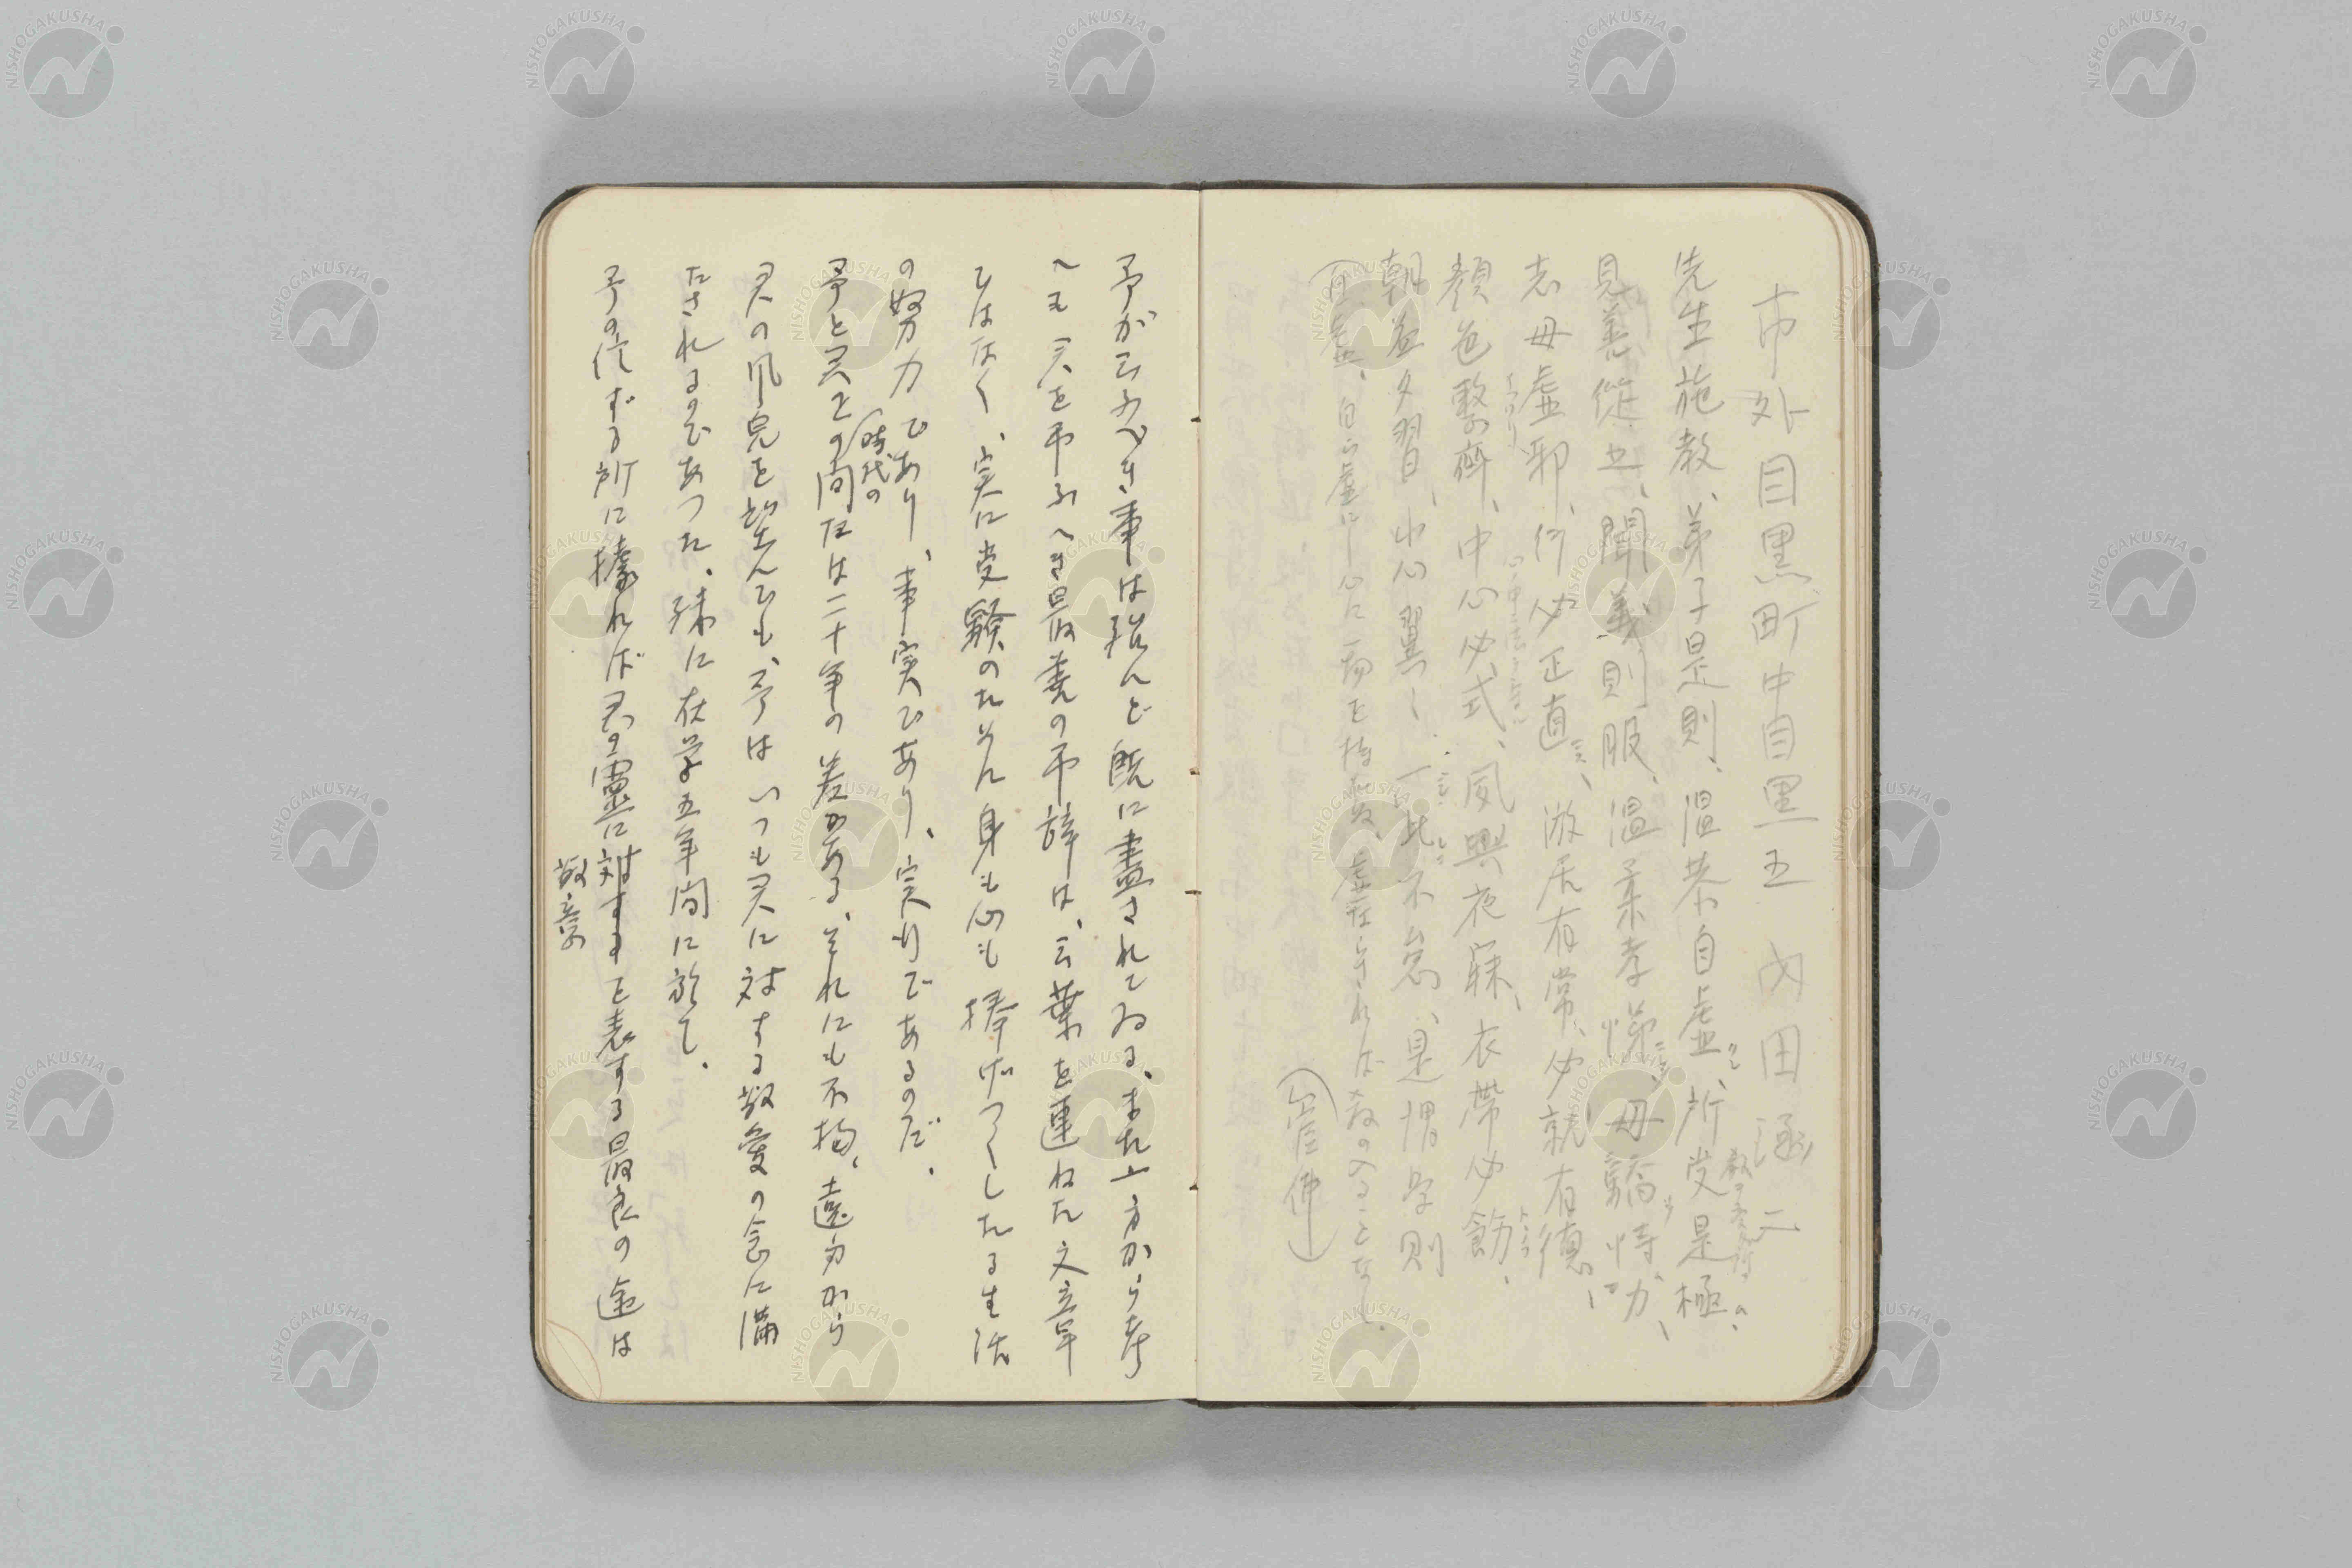 市外目黒町中目黒五 内田涵二
先生施教、弟子是則、温恭自虚、所受是極、
見善従之、聞義則服、温柔孝悌、毋驕恃力、
志毋虚邪、行必正直、游居有常、必就有徳、
顔色整齊、中心必式、夙興夜寐、衣帯必飭、
朝益夕習、小心翼〻、一此不懈、是謂学則
自虚、自ら虚にし心に一物を持たぬ、虚在らされば教の入ることなし、
予が云ふべき事は殆んど既に盡されてゐる、また一方から考
へも 君を弔ふべき最貴の弔辞は、言葉を連ねた文章
ではなく、実に受験のため身も心も捧げつくしたる生活
の努力であり、事実であり、実行であるのだ。
時代の
予と君との間には二十年の差がある、それにも不拘、遠方から
君の風皃を望んでも、予はいつも君に対する敬愛の念に満
たされるのであつた、殊に在学五年間に於て、
予の信ずる所に據れば君の靈に対するを表する最良の途は
敬意
NISHOGAKUSHA